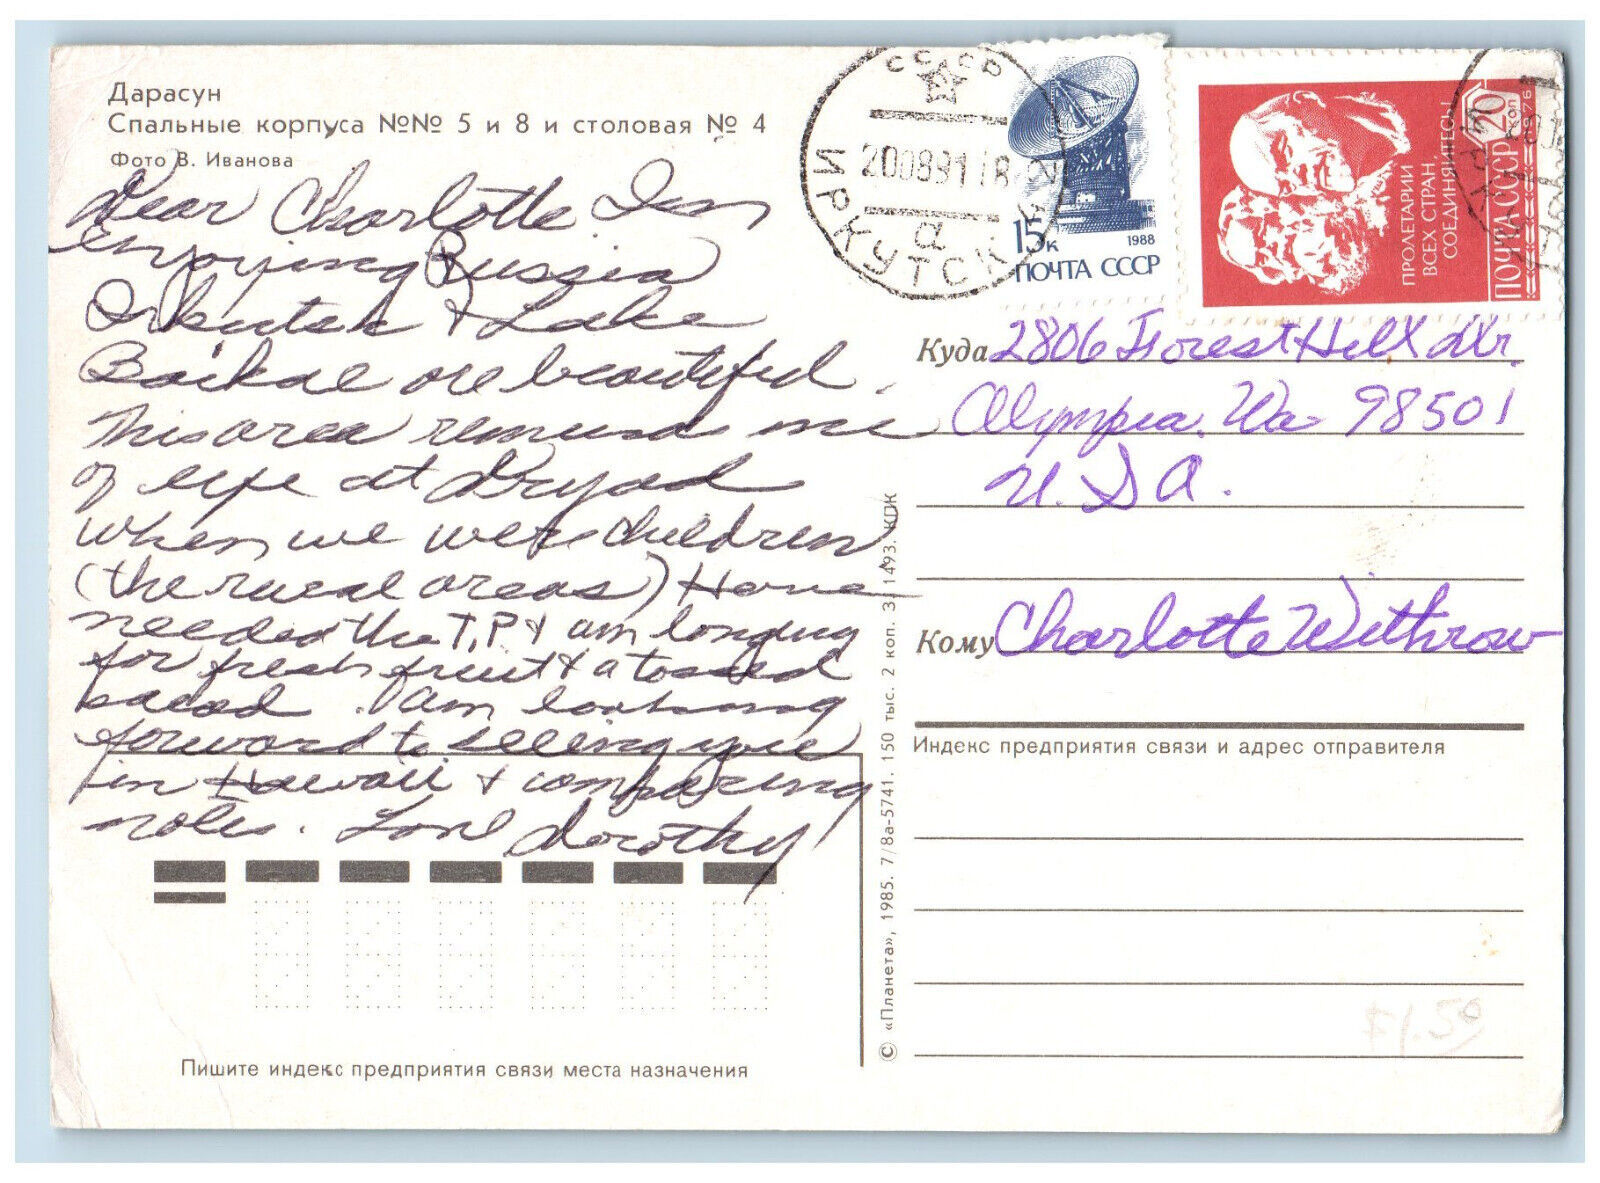 Дарасун
Спальные корпуса №№ 5 и 8 и столовая № 4
Фото В. Иванова
Dear Charlotte Im
enjoying Russia
Irkutsk & Lake
Baikal are beautiful.
This area reminds me
of life at Dryad
when we were children
(the rural areas) Have
needed the T.P & am longing
for fresh fruit & a tossed
salad. I am looking
forward to seeing you
in Hawaii & comparing
notes. Love Dorothy
Пишите индекс предприятия связи места назначения
© «Планета», 1985. 7/8а-5741. 150 тыс. 2 коп. З-1493. КПК
СССР
20089118
а
ИРКУТСК
15к
1988
ПОЧТА СССР
ПРОЛЕТАРИИ
ВСЕХ СТРАН,
СОЕДИНЯЙТЕСЬ!
ПОЧТА СССР
20 коп
1976
Куда 2806 Forest Hill Dr.
Olympia, Wa 98501
U.S.A.
Кому Charlotte Withrow
Индекс предприятия связи и адрес отправителя